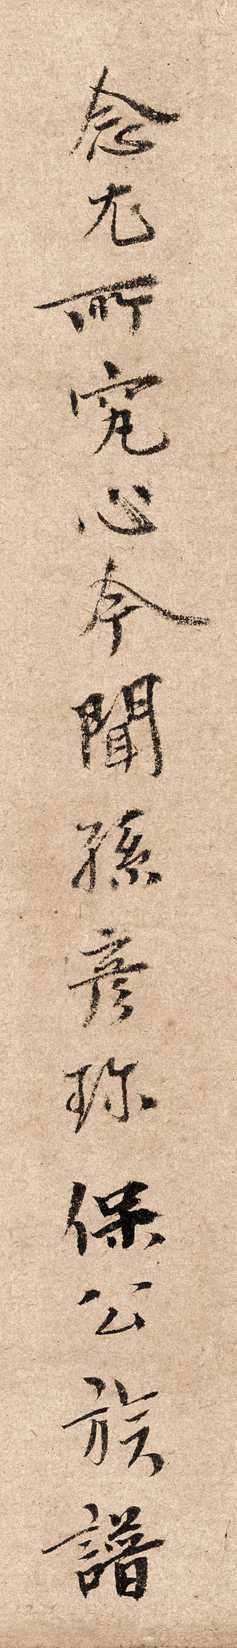 念尤所究心今聞孫彥珎保公族譜